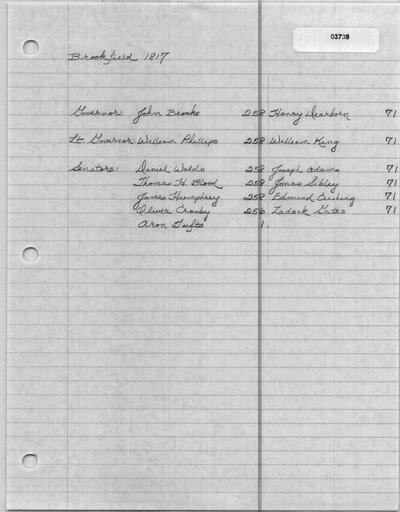 03739
Brookfield 1817
Governor: John Brooks 258 Henry Dearborn 71
Lt. Governor: William Phillips 258 William King 71
Senators: Daniel Waldo 258 Joseph Adams 71
Thomas H. Blood 258 Jonas Sibley 71
James Humphrey 258 Edmund Cushing 71
Oliver Crosby 256 Zadock Gates 71
Aron Tufts 1